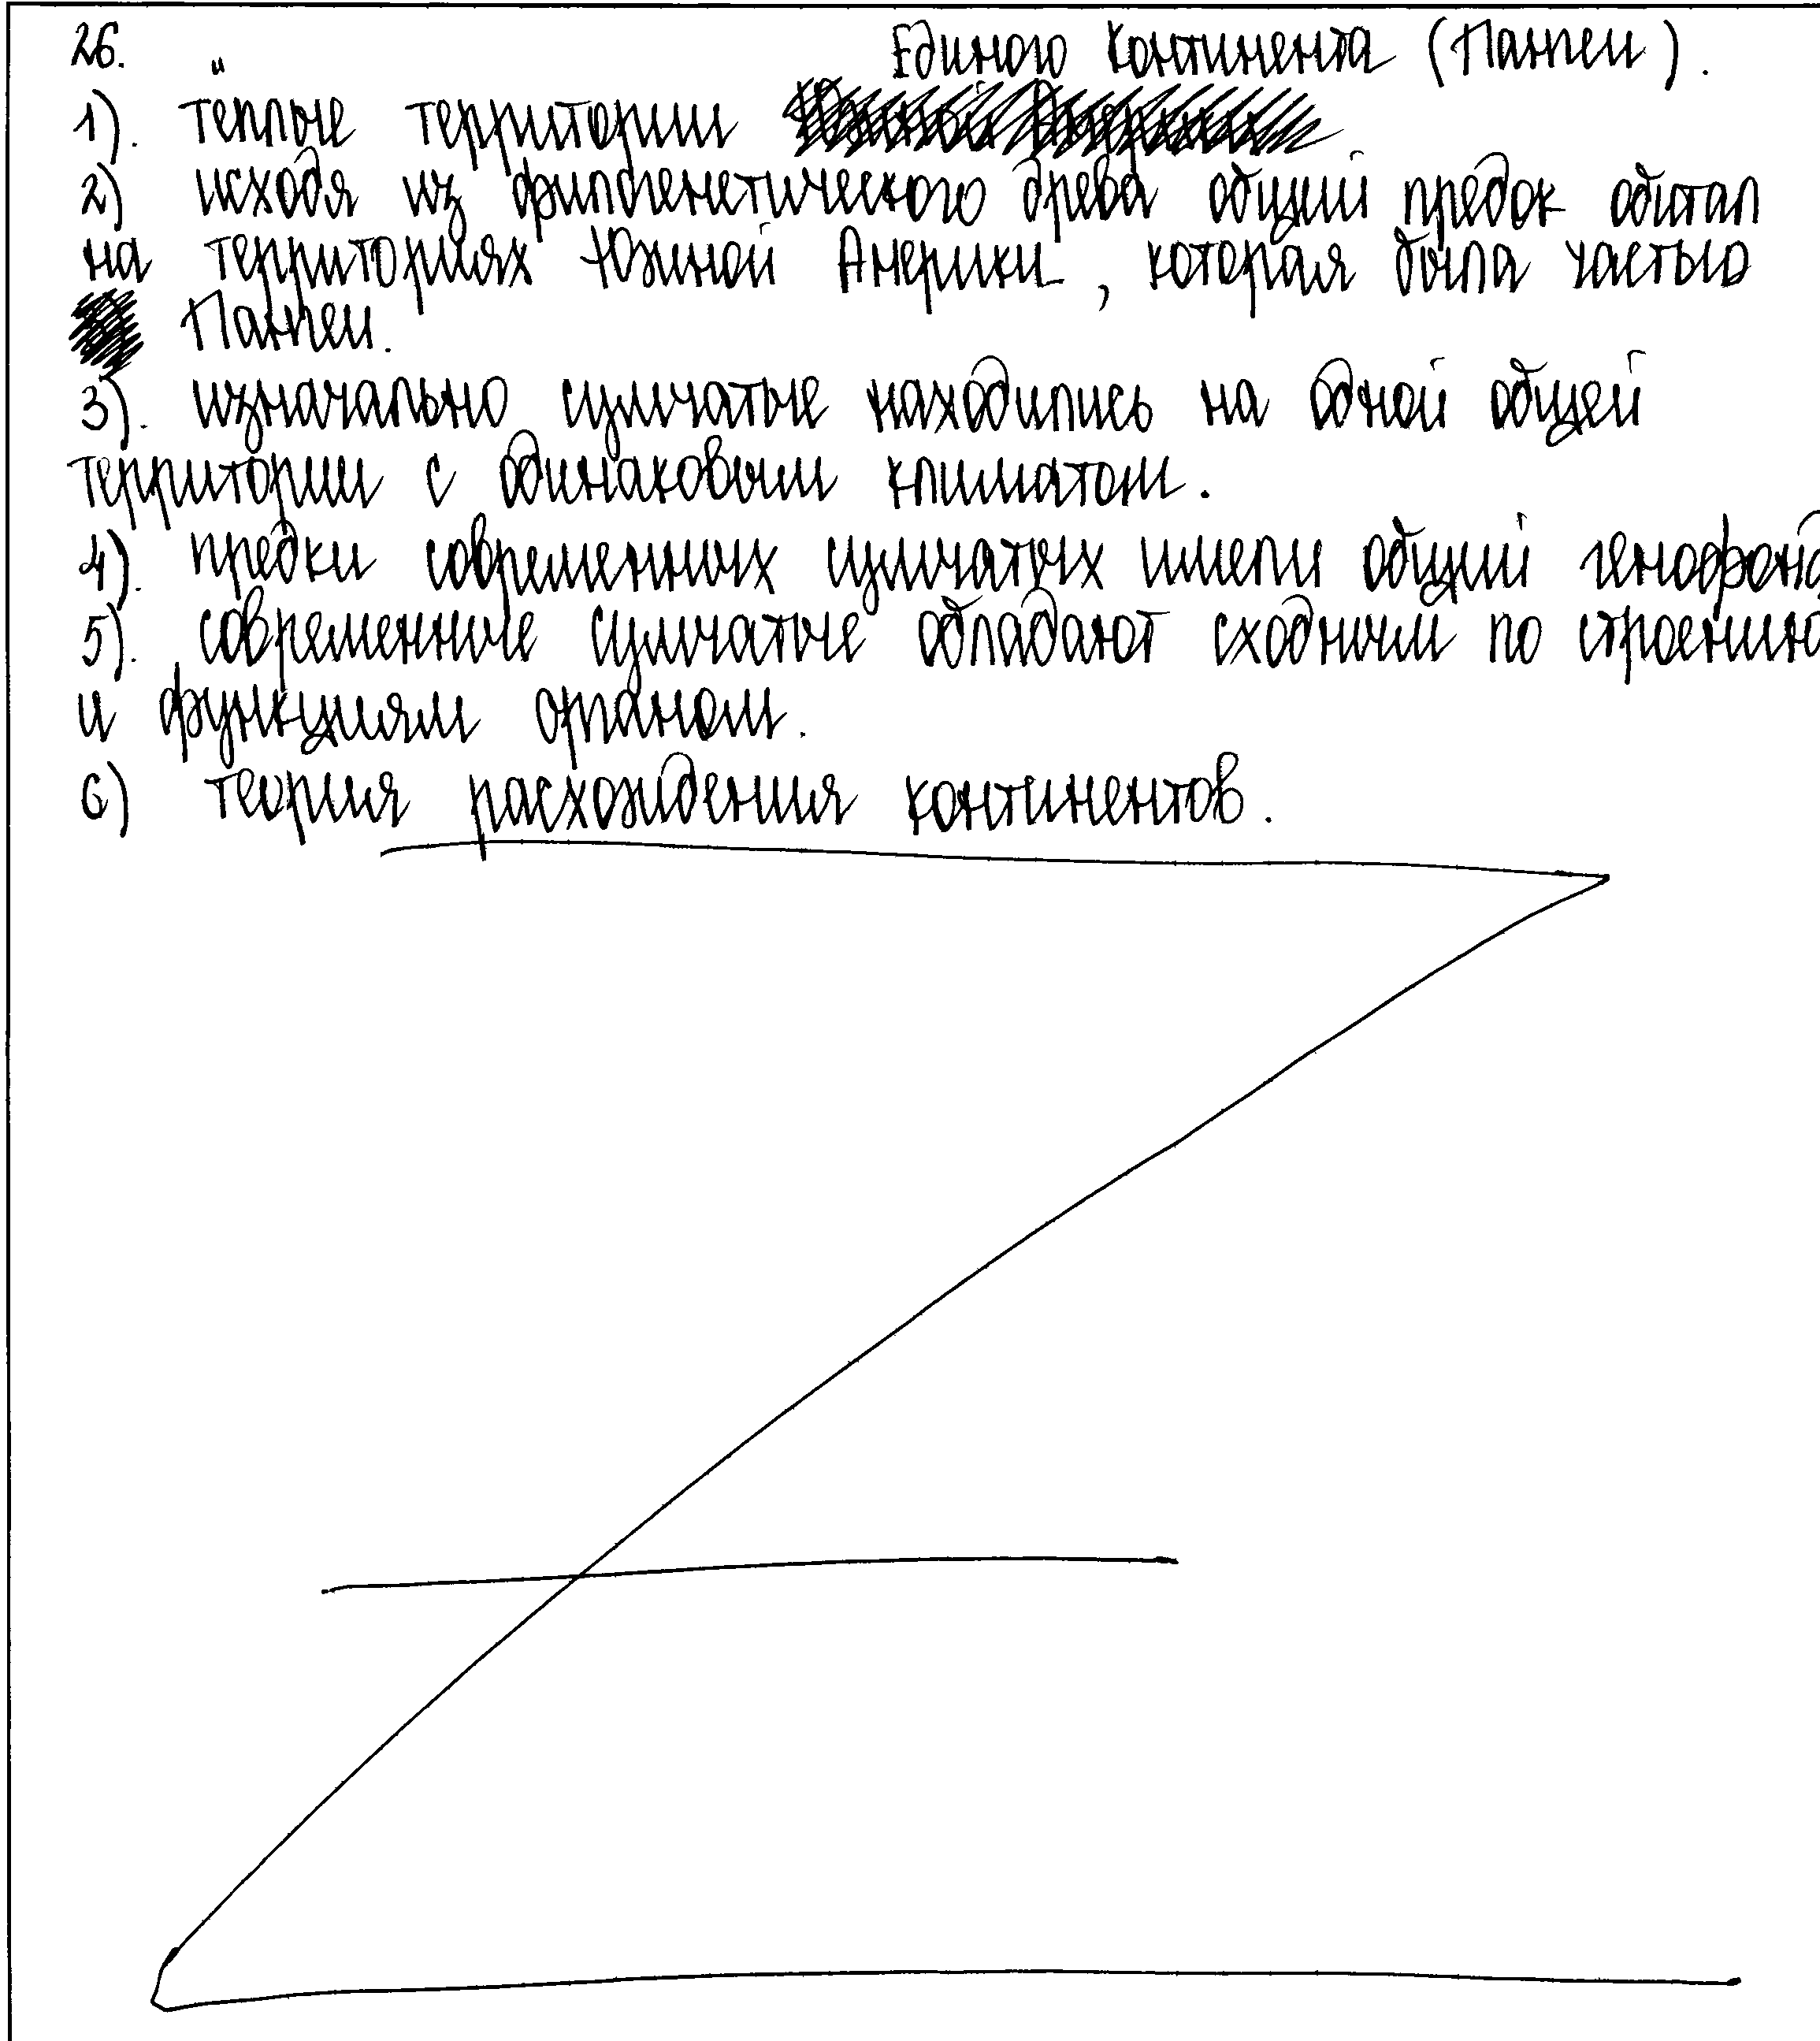 26.
Единого континента (Пангеи).
1). тёплые территории
2) исходя из филогенетического древа общий предок обитал
на территориях Южной Америки, которая была частью
Пангеи.
3). изначально сумчатые находились на одной общей
территории с одинаковым климатом.
4). предки современных сумчатых имели общий генофонд
5). современные сумчатые обладают сходным по строению
и функциям органом.
6) теория расхождения континентов.